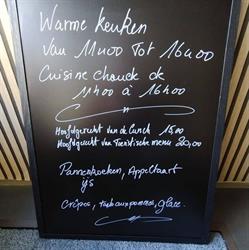 Warme keuken
Van 11u00 Tot 16u00
Cuisine Chaude de
11h00 à 16h00
Hoofdgerecht van de Lunch 15,00
Hoofdgerecht van Toeristische menu 20,00
Pannenkoeken, Appeltaart
ys
Crêpes, Tarte aux pommes, glace.